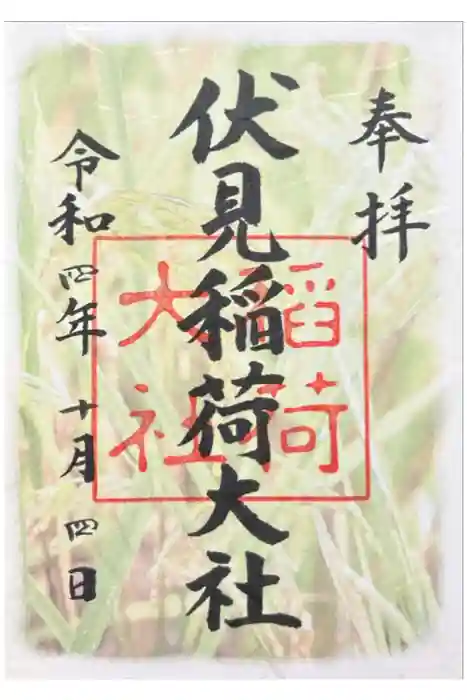 奉拝
伏見稲荷大社
稲荷
大社
令和四年十月四日